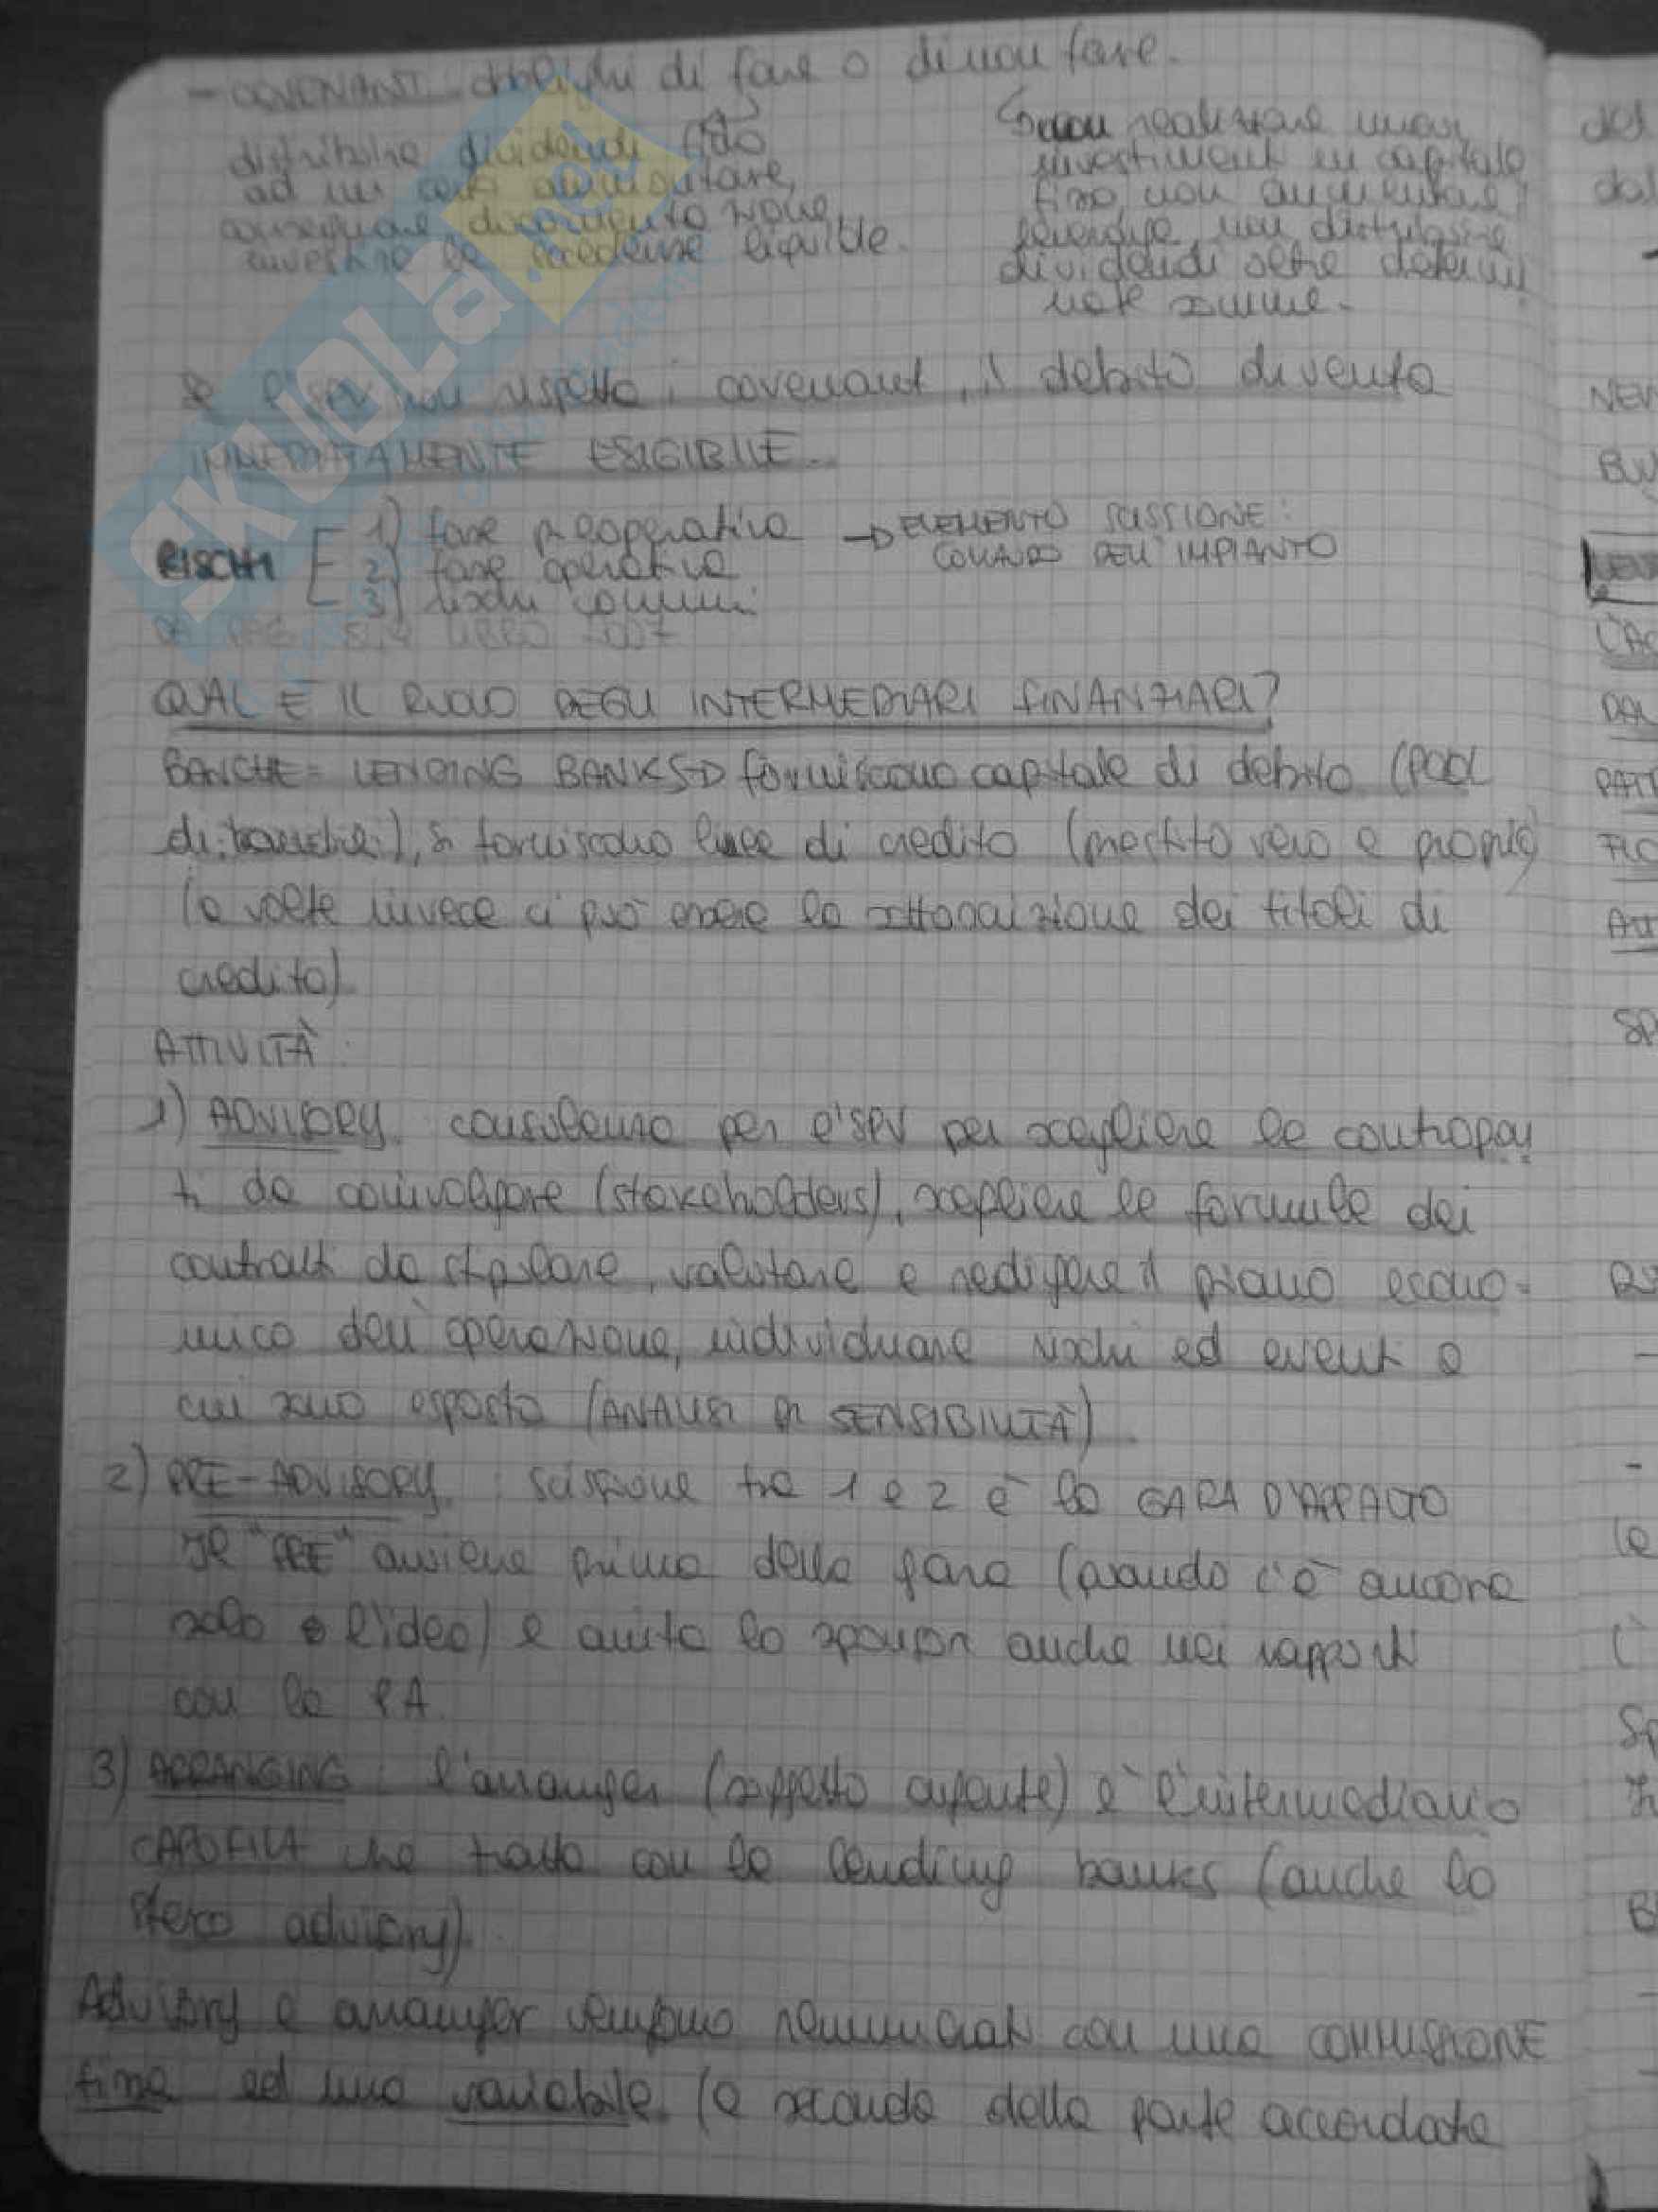 - COVENANT: obblighi di fare o di non fare.
distribuire dividendi fino
ad un certo ammontare,
documentazione,
investire le eccedenze liquide.
non realizzare nuovi
investimenti in capitale
fisso, non aumentare il
leverage, non distribuire
dividendi oltre determi
nate somme.
Se l'SPV non rispetta i covenant, il debito diventa
IMMEDIATAMENTE ESIGIBILE.
RISCHI
1) fase preoperativa → ELEMENTO SCISSIONE:
2) fase operativa COLLAUDO DELL'IMPIANTO
3) rischi comuni
QUAL È IL RUOLO DEGLI INTERMEDIARI FINANZIARI?
BANCHE = LENDING BANKS → forniscono capitale di debito (POOL
di banche), forniscono linee di credito (prestito vero e proprio)
(a volte invece ci può essere la sottoscrizione dei titoli di
credito)
ATTIVITÀ:
1) ADVISORY: consulenza per l'SPV per scegliere le contropar
ti da coinvolgere (stakeholders), scegliere le formule dei
contratti da stipulare, valutare e redigere il piano econo-
mico dell'operazione, individuare rischi ed eventi a
cui sono esposto (ANALISI DI SENSIBILITÀ).
2) PRE-ADVISORY: scissione tra 1 e 2 è la GARA D'APPALTO
Il "PRE" avviene prima della gara (quando c'è ancora
solo l'idea) e aiuta lo sponsor anche nei rapporti
con la PA.
3) ARRANGING: l'arranger (soggetto agente) è l'intermediario
CAPOFILA che tratta con le lending banks (anche lo
stesso advisory).
Advisory e arranger vengono remunerati con una COMMISSIONE
fissa ed una variabile (a seconda della parte accordata
SKUOLa.net
del
dal
NEW
BU
L'AC
DAL
PATT
FLO
ATT
SP